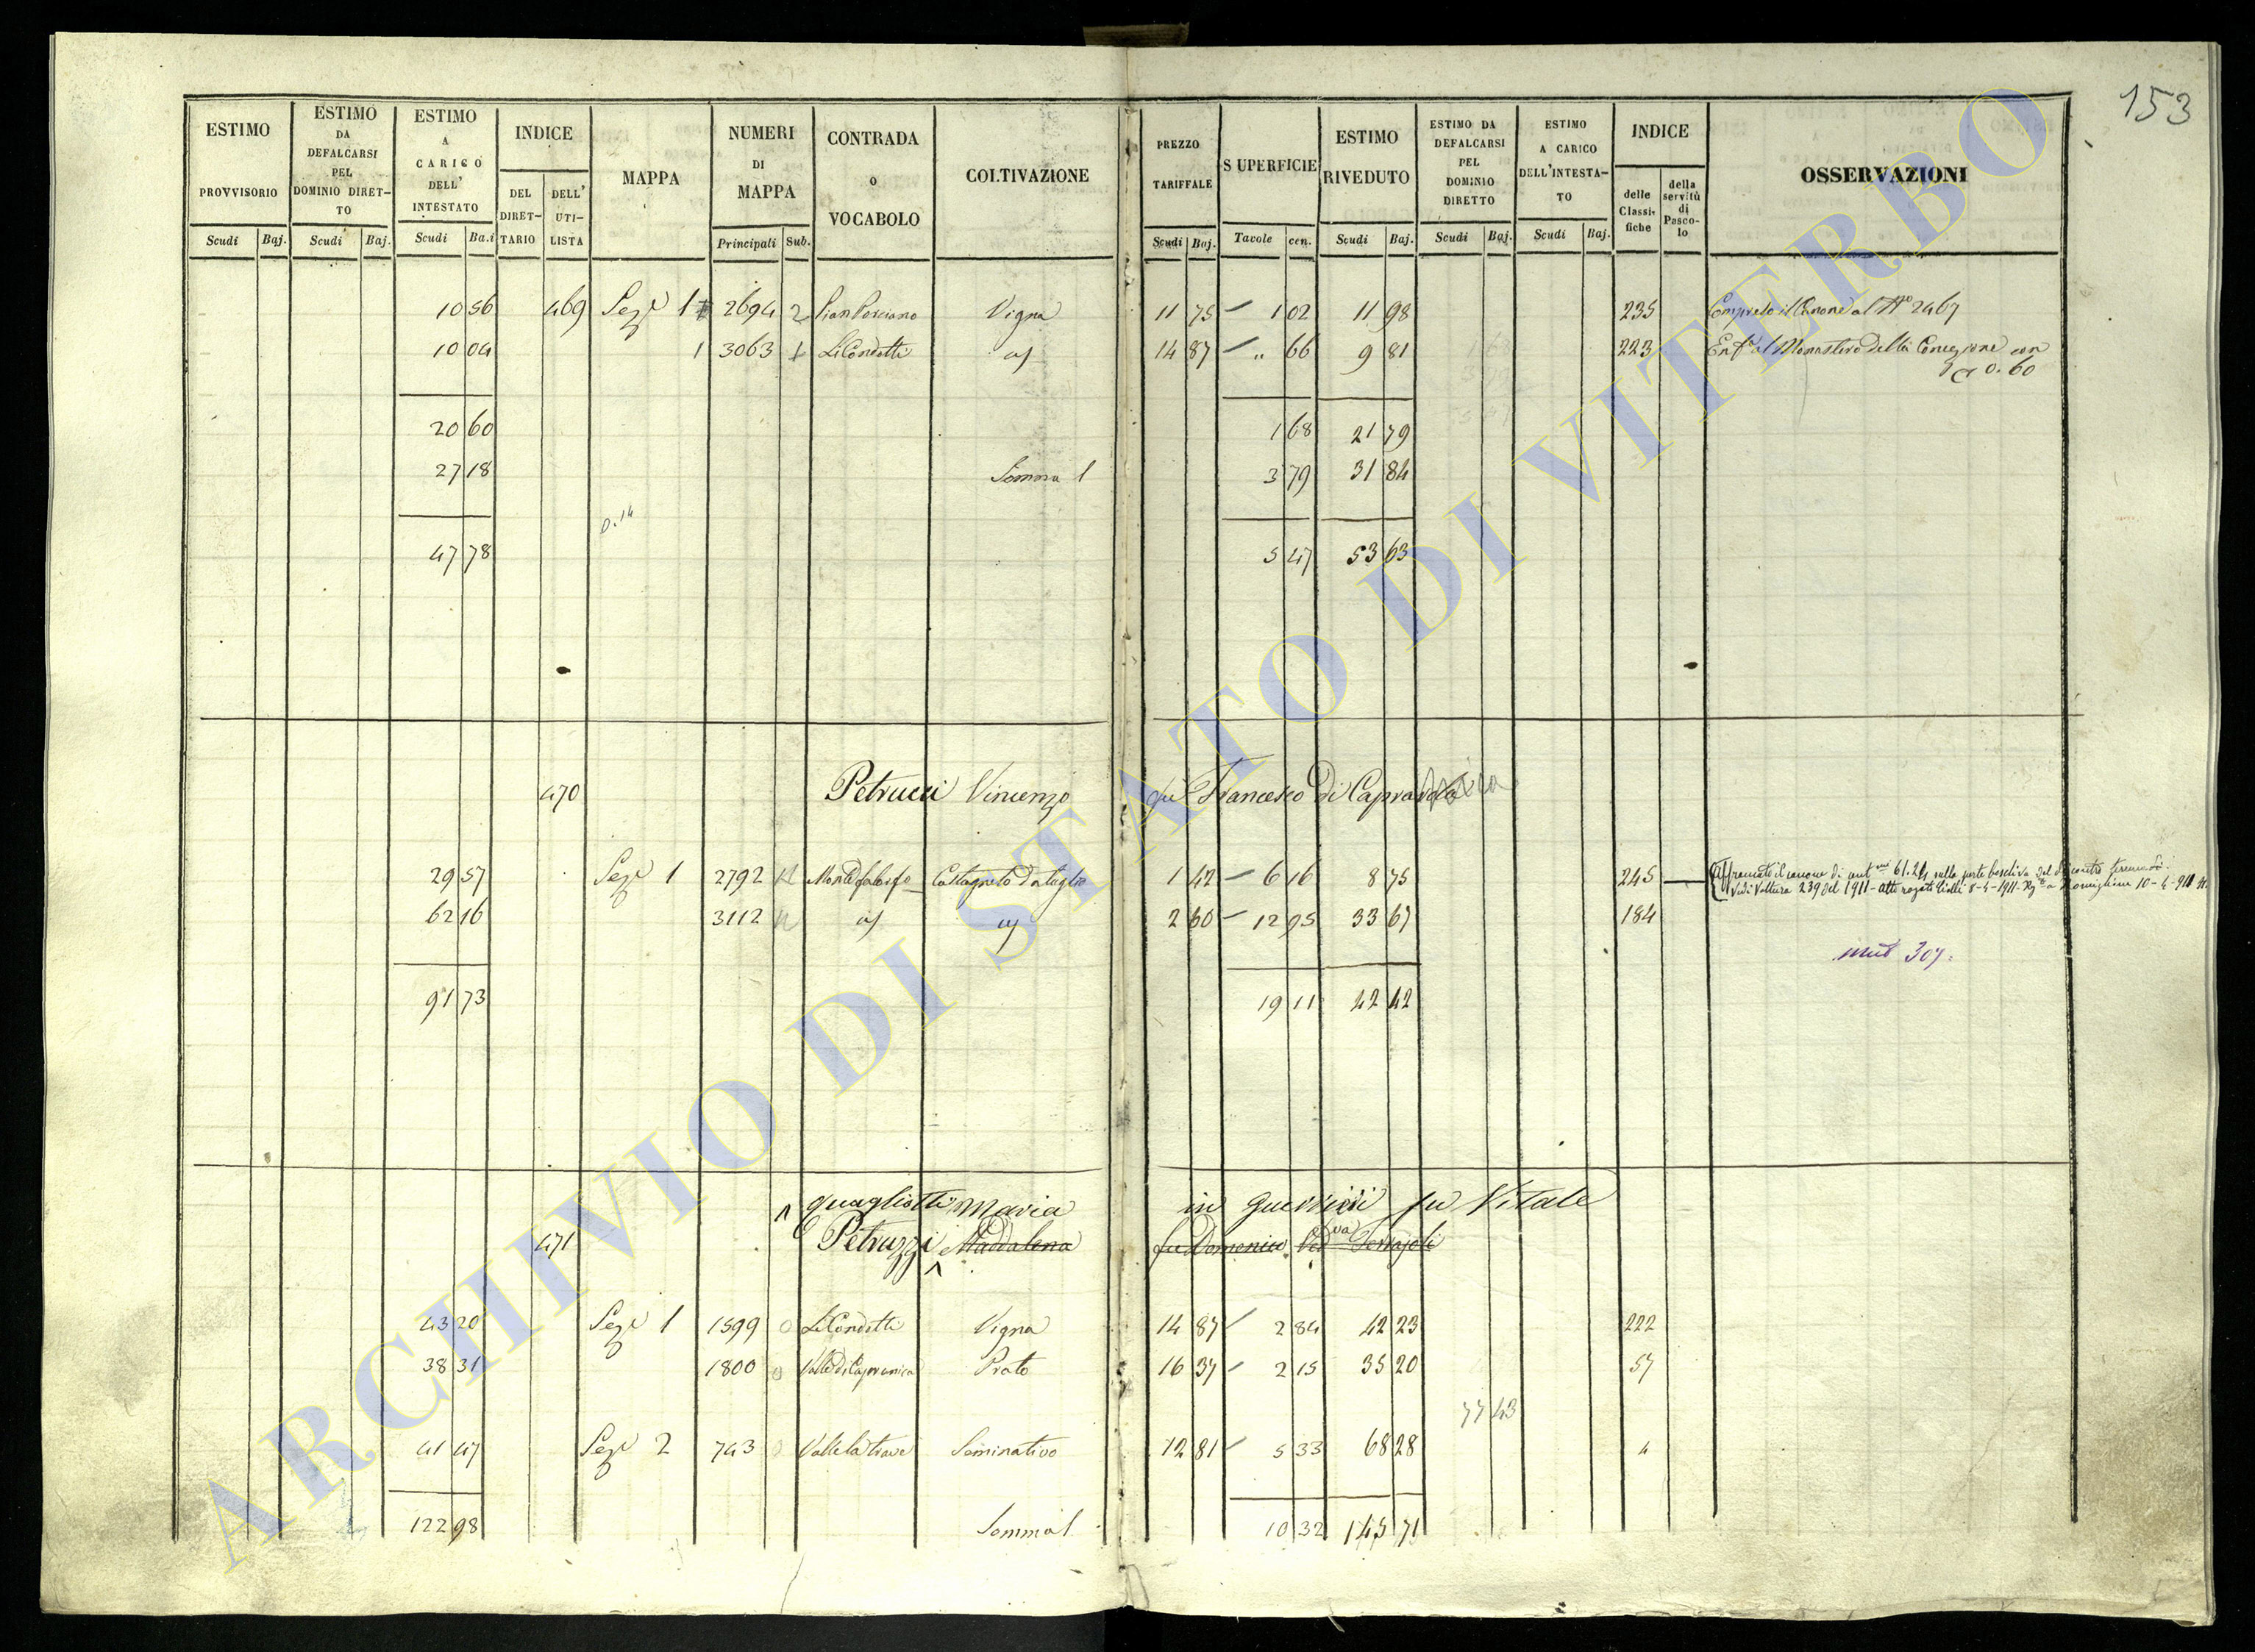 153
ESTIMO PROVVISORIO | ESTIMO DA DEFALCARSI PEL DOMINIO DIRETTO | ESTIMO A CARICO DELL' INTESTATO | INDICE | MAPPA | NUMERI DI MAPPA | CONTRADA O VOCABOLO | COLTIVAZIONE | PREZZO TARIFFALE | SUPERFICIE | ESTIMO RIVEDUTO | ESTIMO DA DEFALCARSI PEL DOMINIO DIRETTO | ESTIMO A CARICO DELL'INTESTATO | INDICE | OSSERVAZIONI
DEL DIRETTARIO | DELL' UTILISTA | delle Classifiche | della servitù di Pascolo
Scudi | Baj. | Scudi | Baj. | Scudi | Ba.i | Principali | Sub. | Scudi | Baj. | Tavole | cen. | Scudi | Baj. | Scudi | Baj. | Scudi | Baj.
10 56 | 469 | Sez.e 1 | 2694 | 2 | Pian Porciano | Vigna | 11 75 | 1 02 | 11 98 | 235 | Compreso il Canone al N° 2467
10 04 | 1 | 3063 | 1 | Li Condotti | 14 87 | " 66 | 9 81 | 223 | Enf.a al Monastero della Concezione con
0.60
20 60 | 1 68 | 21 79
27 18 | Somma 1 | 3 79 | 31 84
0.14
47 78 | 5 47 | 53 63
470 | Petrucci Vincenzo qu Francesco di Capranica
29 57 | Sez.e 1 | 2792 | Castagneto da taglio | 1 42 | 6 16 | 8 75 | 245 | Affrancato il canone di
Vedi Voltura 239 del 1911 - atto rogato 8-4-1911
62 16 | 3112 | 2 60 | 12 95 | 33 67 | 184
mut 307
91 73 | 19 11 | 42 42
Quagliotti Maria in Guerrieri fu Vitale
471 | Petruzzi Maddalena fu Domenico Ved.va
43 20 | Sez.e 1 | 1599 | 0 | Li Condotti | Vigna | 14 87 | 2 84 | 42 23 | 222
38 31 | 1800 | 0 | Valle di Capranica | Prato | 16 37 | 2 15 | 35 20 | 57
77 43
41 47 | Sez.e 2 | 743 | Valle la trave | Seminativo | 12 81 | 5 33 | 68 28 | 4
122 98 | Somma 1 | 10 32 | 145 71
ARCHIVIO DI STATO DI VITERBO